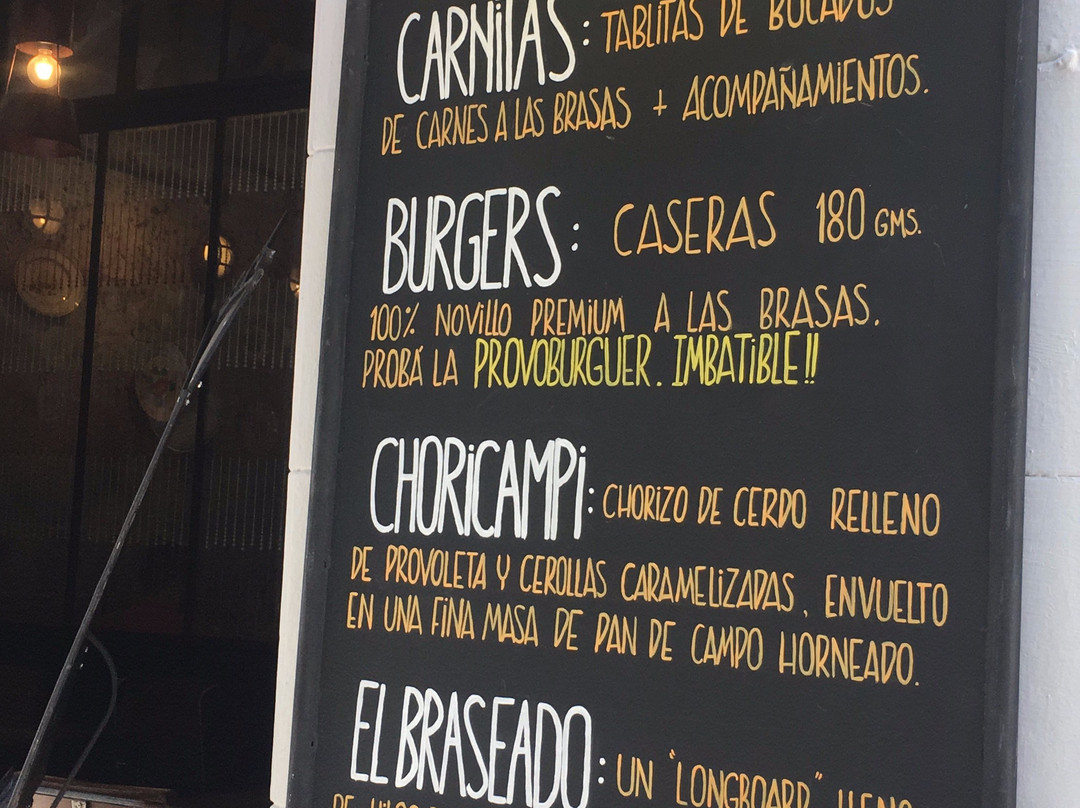 CARNITAS: TABLITAS DE BOCADOS
DE CARNES A LAS BRASAS + ACOMPAÑAMIENTOS.
BURGERS: CASERAS 180 GMS.
100% NOVILLO PREMIUM A LAS BRASAS.
PROBÁ LA PROVOBURGUER. IMBATIBLE!!
CHORICAMPI: CHORIZO DE CERDO RELLENO
DE PROVOLETA Y CEROLLAS CARAMELIZADAS, ENVUELTO
EN UNA FINA MASA DE PAN DE CAMPO HORNEADO.
EL BRASEADO: UN "LONGBOARD" LLENO
DE